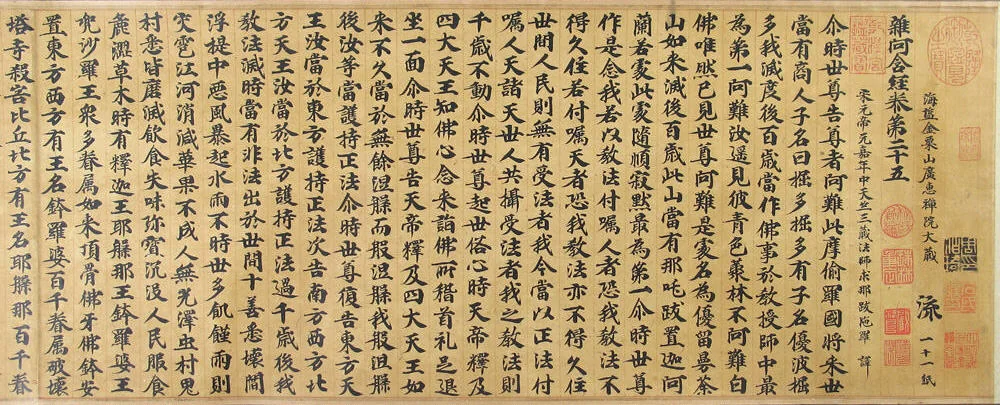 海鹽金粟山廣惠禪院大藏 流 一十一紙
雜阿含經卷第二十五
宋元帝元嘉年中天竺三藏法師求那跋陁羅 譯
尒時世尊告尊者阿難此摩偷羅國將来世
當有商人子名曰掘多掘多有子名優波掘
多我滅度後百歲當作佛事於教授師中最
為第一阿難汝遥見彼青色藂林不阿難白
佛唯然已見世尊阿難是處名為優留曼荼
山如来滅後百歲此山當有那吒跋置迦阿
蘭若處此處隨順寂默最為第一尒時世尊
作是念我若以教法付嘱人者恐我教法不
得久住若付嘱天者恐我教法亦不得久住
世間人民則無有受法者我今當以正法付
嘱人天諸天世人共攝受法者我之教法則
千歲不動尒時世尊起世俗心時天帝釋及
四大天王知佛心念来詣佛所稽首礼足退
坐一面尒時世尊告天帝釋及四大天王如
来不久當於無餘涅槃而般涅槃我般涅槃
後汝等當護持正法尒時世尊復告東方天
王汝當於東方護持正法次告南方西方北
方天王汝當於北方護持正法過千歲後我
教法滅時當有非法出於世間十善悉壞閻
浮提中惡風暴起水雨不時世多飢饉雨則
灾雹江河消滅華果不成人無光澤虫村鬼
村悉皆磨滅飲食失味珎寳沉没人民服食
麁澀草木時有釋迦王耶槃那王鉢羅婆王
兜沙羅王衆多眷属如来頂骨佛牙佛鉢安
置東方西方有王名鉢羅婆百千眷属破壞
塔寺殺害比丘北方有王名耶槃那百千眷